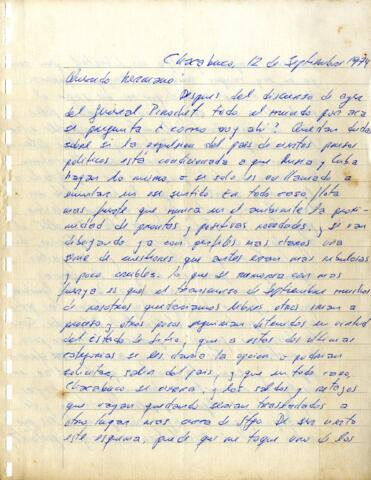 Chacabuco, 12 de Septiembre 1974
Querido hermano:
Después del discurso de ayer
del General Pinochet, todo el mundo por acá
se pregunta ¿cómo voy ahí? Quedan dudas
sobre si la expulsión del país de ciertos presos
políticos está condicionada a que Rusia y Cuba
hagan lo mismo, o si solo es un llamado a
en ese sentido. En todo caso, flota
mas fuerte que nunca en el ambiente la proxi-
midad de prontas y positivas novedades, y se van
dibujando ya con perfiles mas claros una
serie de cuestiones que antes eran mas nebulosas
y poco creibles. Lo que se rumorea con mas
fuerza es que en el transcurso de Septiembre muchos
de nosotros quedaríamos libres, otros irían a
proceso y otros pocos seguirían detenidos en virtud
del Estado de Sitio; que a estos dos últimas
categorías se les daría la opción o podrían
solicitar, salir del país, y que en todo caso,
Chacabuco se cierra, y los saldos y
que vayan quedando serían trasladados a
otro lugar mas cerca de Stgo. De ser cierto
este esquema, puede que me toque uno de los